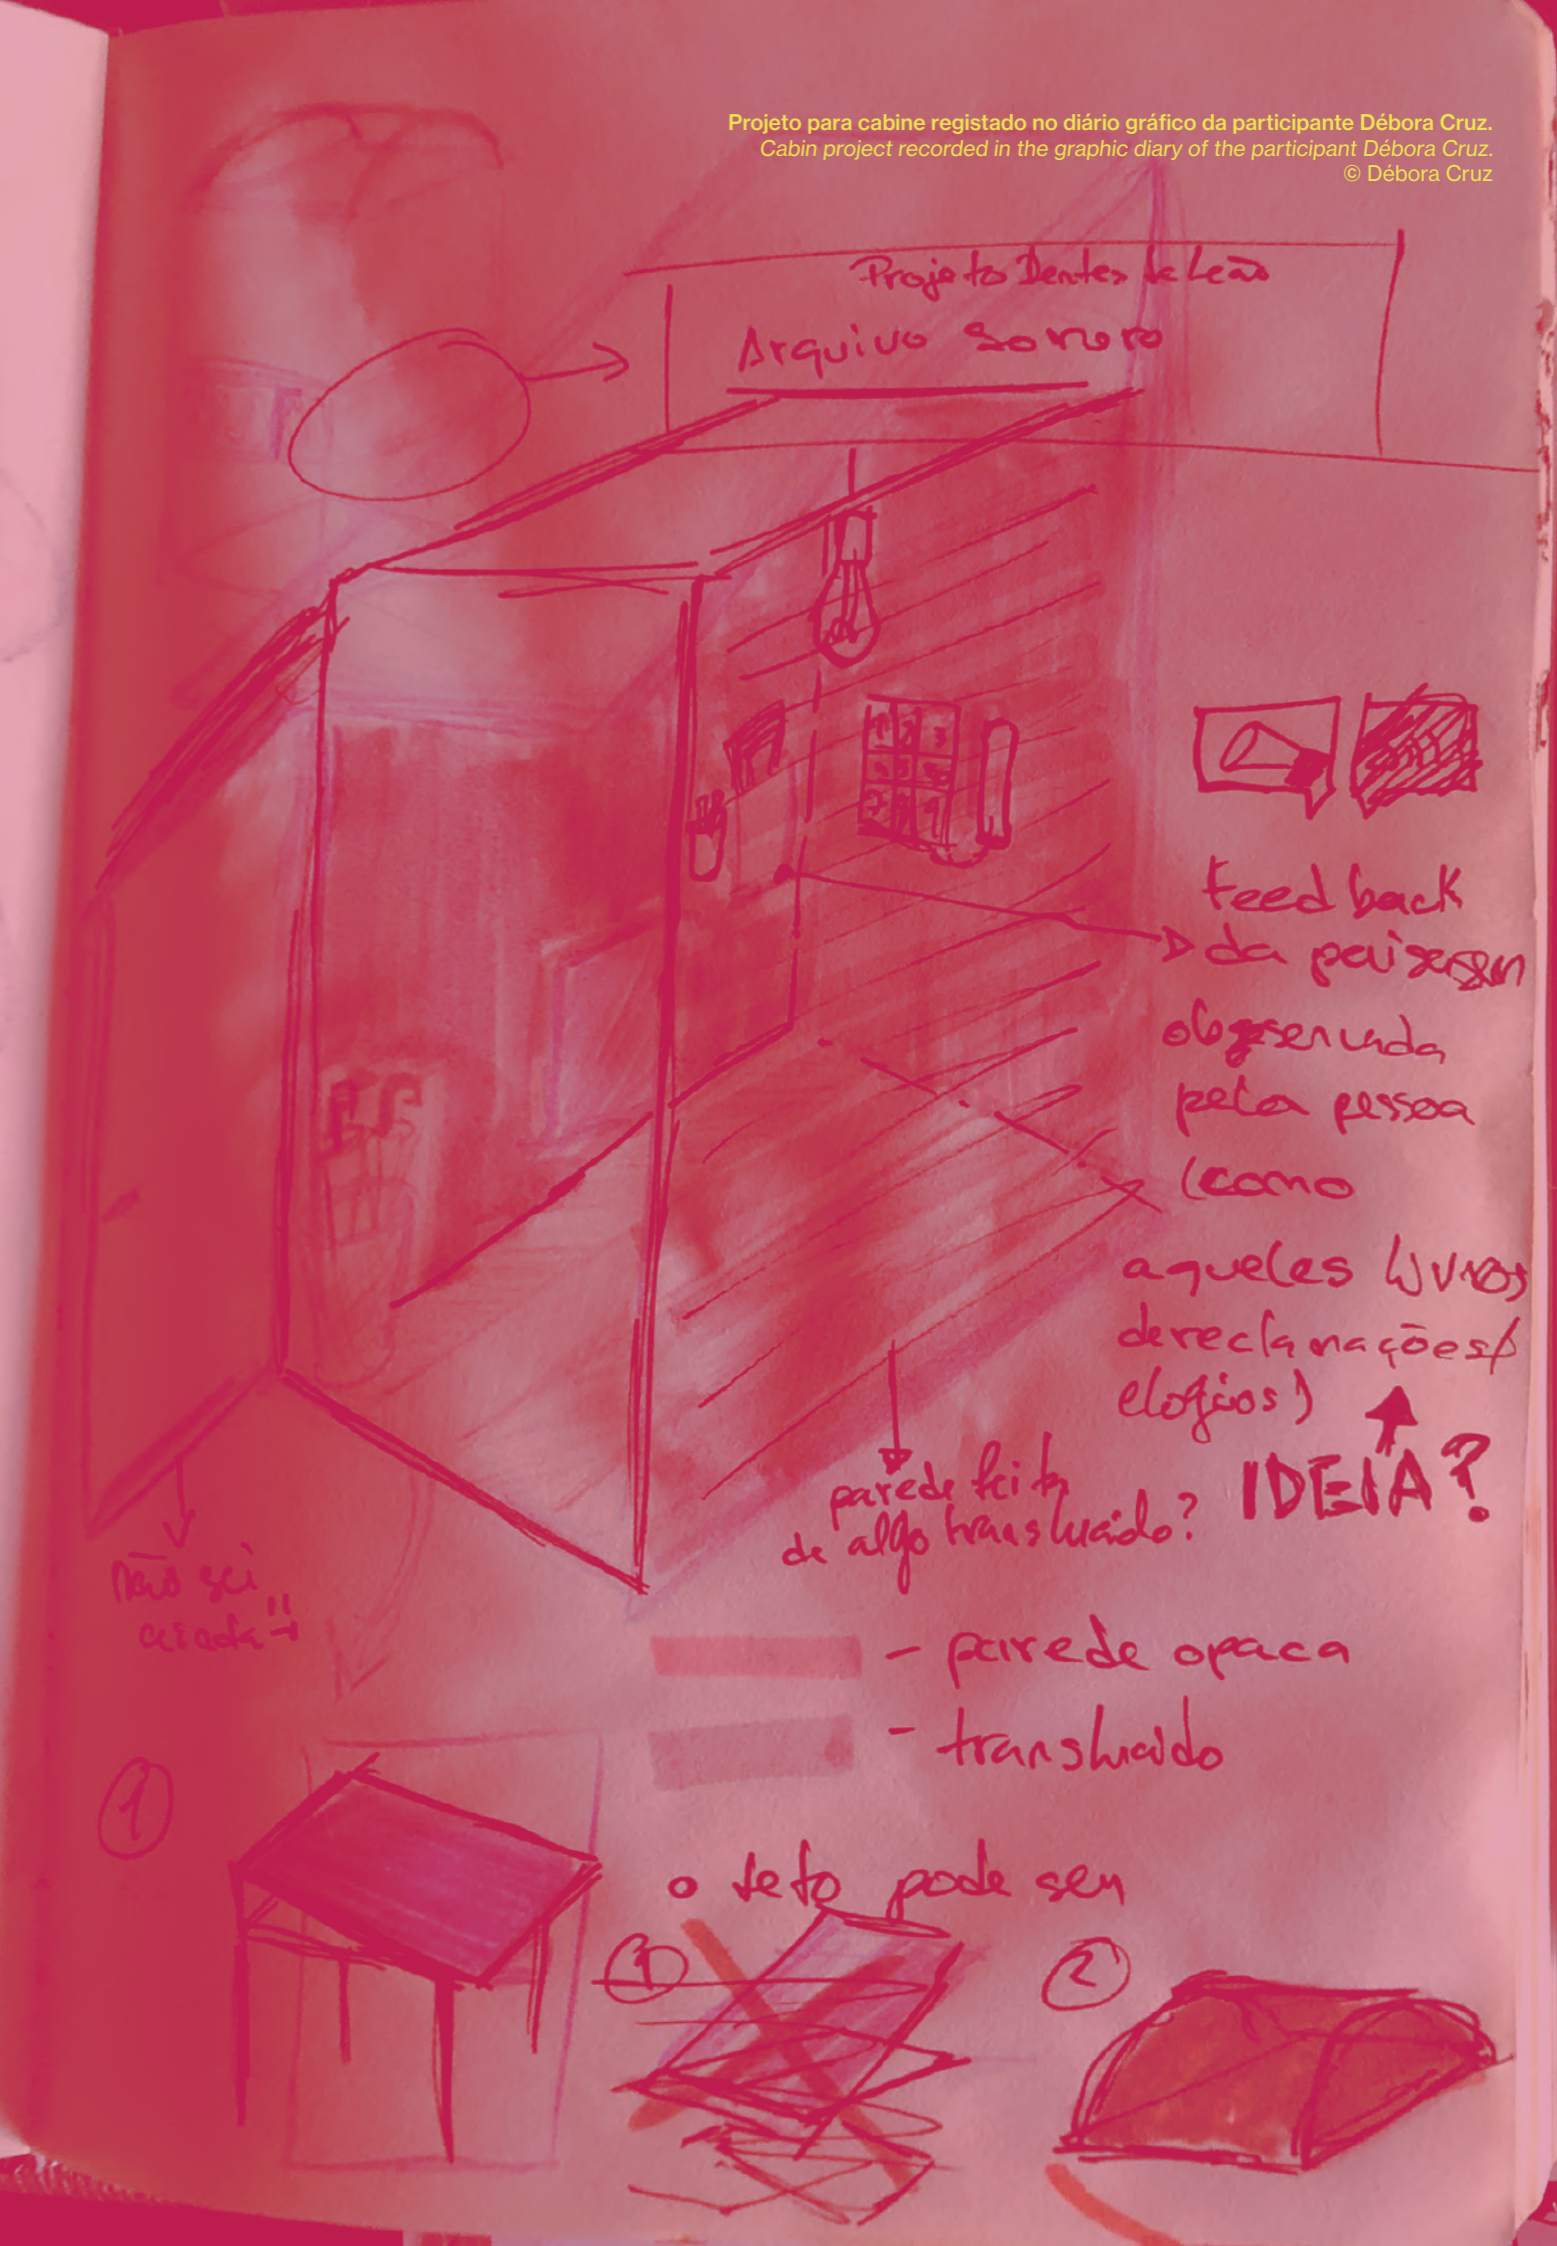 Projeto para cabine registado no diário gráfico da participante Débora Cruz.
Cabin project recorded in the graphic diary of the participant Débora Cruz.
© Débora Cruz
Projeto Dentes de Leão
Arquivo Sonoro
1 2 3
Feedback
da paisagem
observada
pela pessoa
(como
aqueles livros
de reclamações/
elogios)
IDEIA?
parede feita
de algo translucido?
Não sei
ainda
- parede opaca
- translucido
1
o teto pode ser
1
2